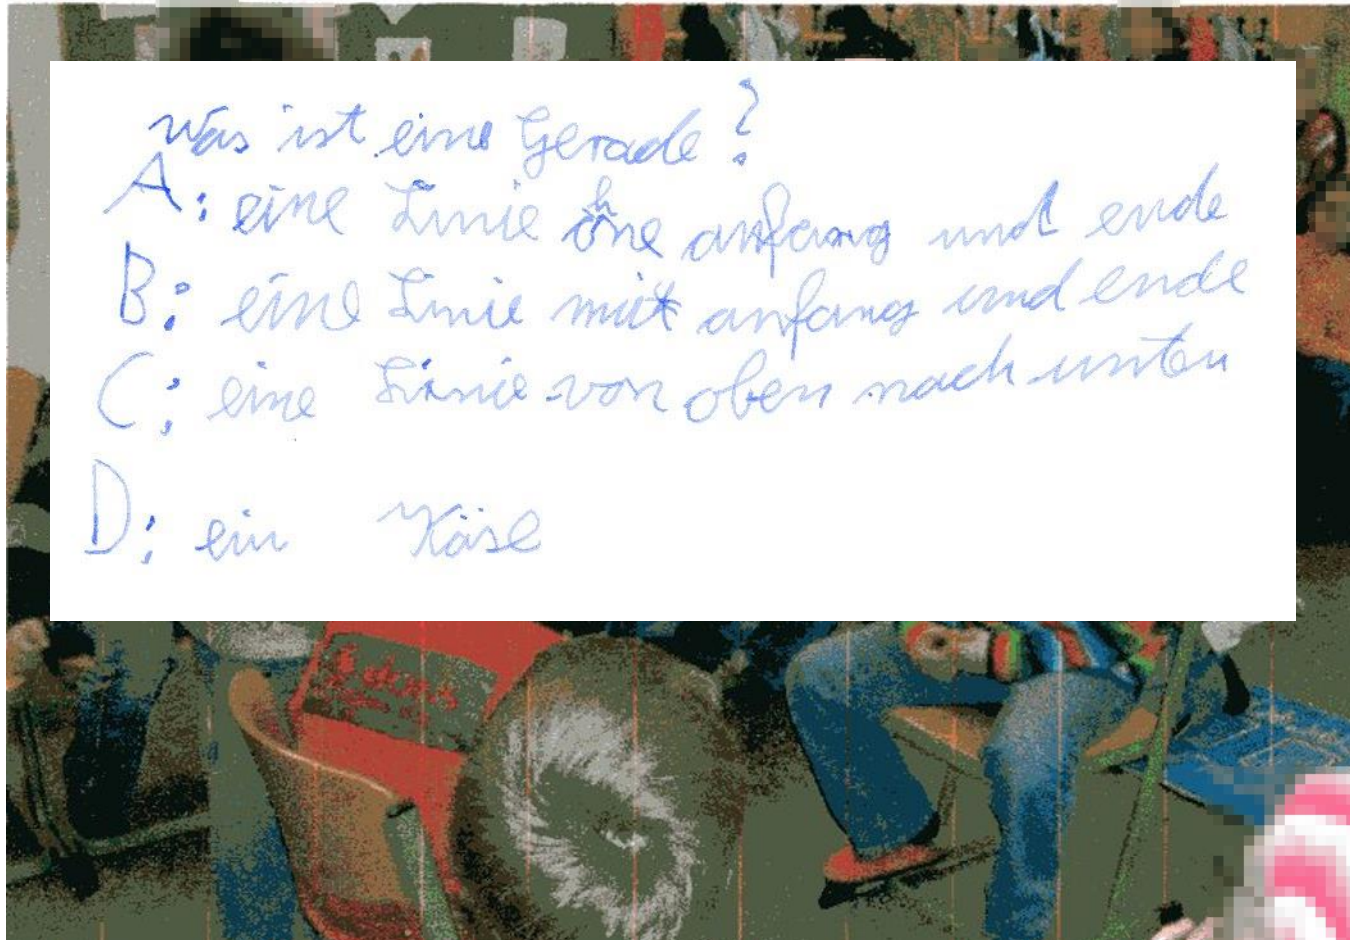 was ist eine Gerade?
A: eine Linie ohne anfang und ende
B: eine Linie mit anfang und ende
C: eine Linie von oben nach unten
D: ein Käse